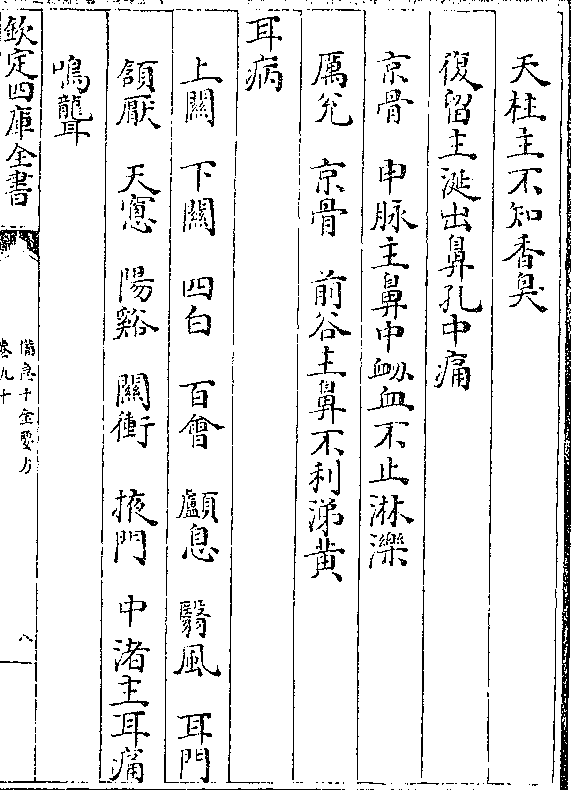 天柱主不知香臭
復留主涎出鼻孔中痛
京骨　申脉主鼻中衂血不止淋濼
厲兊　京骨　前谷主鼻不利涕黄
耳病
上關　下關　四白　百會　顱息　翳風　耳門
頷厭　天窻　陽谿　關衝　掖門　中渚主耳痛
鳴聾
欽定四庫全書
備急千金要方
卷九十
八